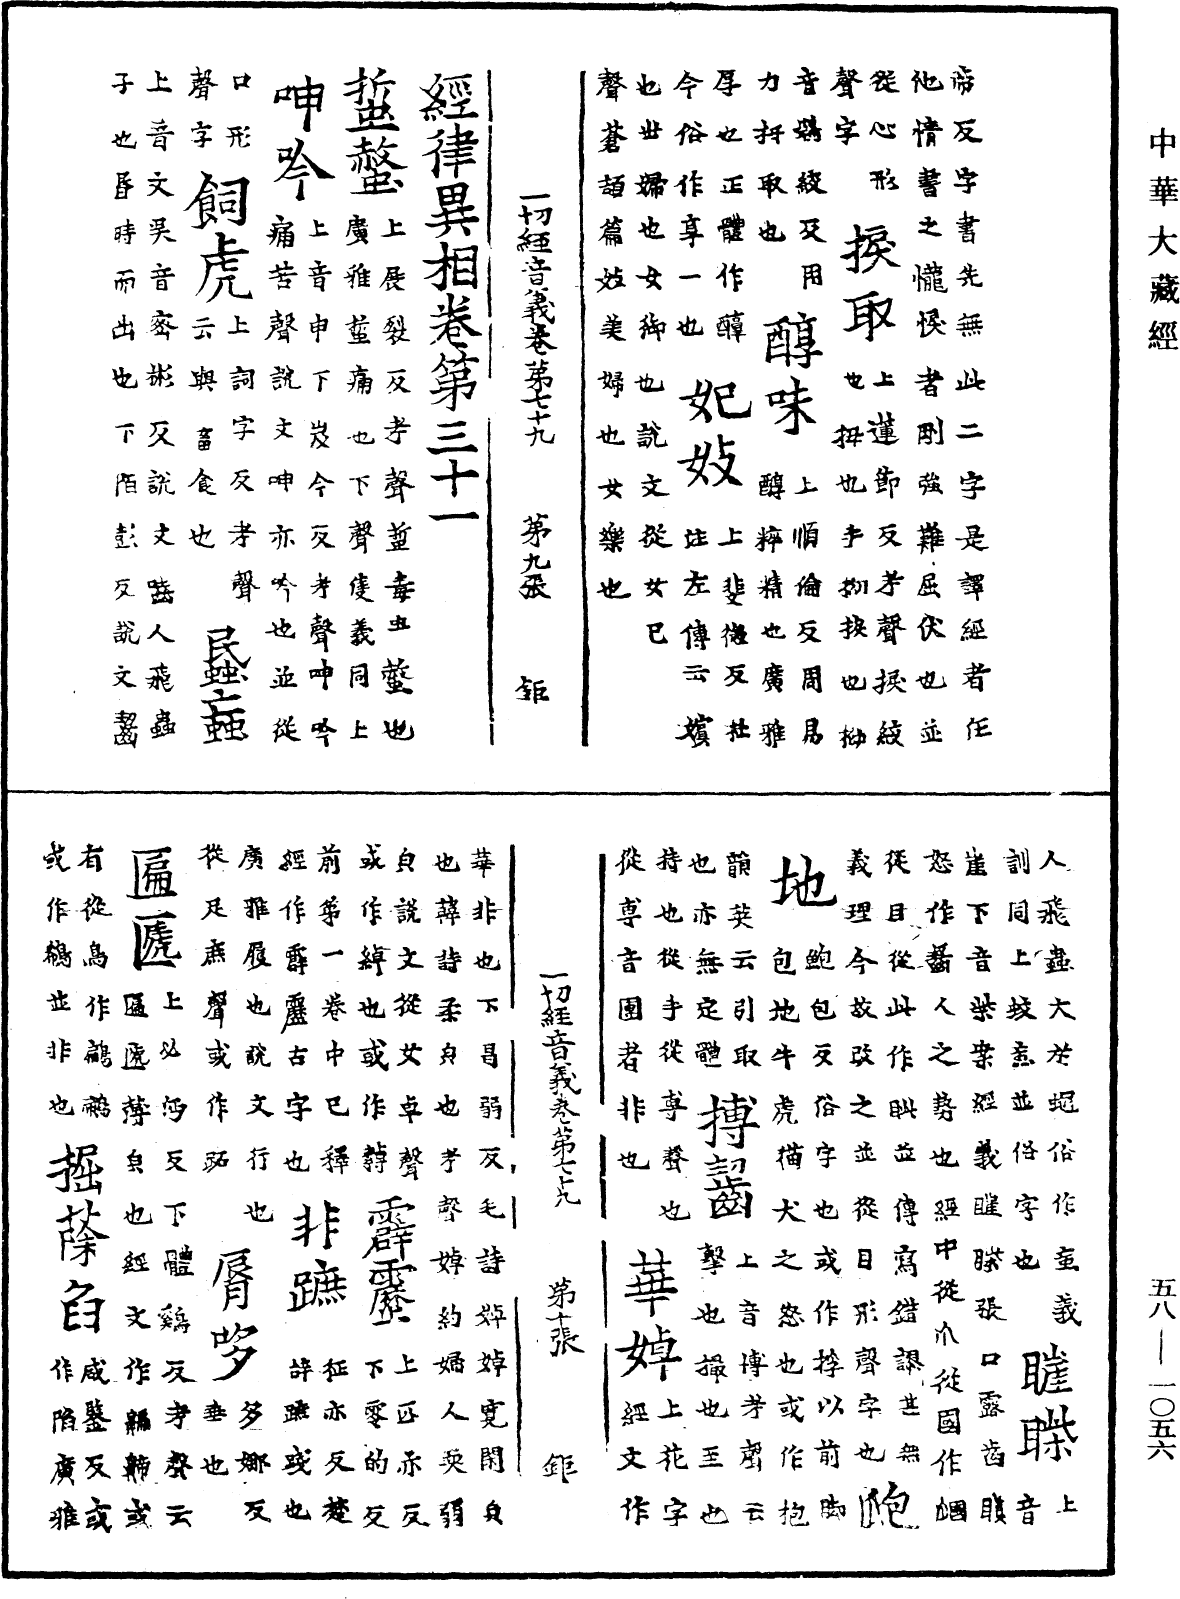 中華大藏經
帝反字書先無此二字是譯經者任
他情書之懺悷者剛強難屈伏也並
從心形
聲字
捩取
上蓮節反考聲捩絞
也拗也手捩也拗
音嬌絞反用
力拗取也
醇味
上順倫反周易
醇粹精也廣雅
厚也正體作醇
今俗作享一也
妃妓
上斐微反杜
注左傳云嬪
也世婦也女御也說文從女巳
聲蒼頡篇妓美婦也女樂也
一切經音義卷第七十九　第九張　鉅
經律異相卷第三十一
蜇螫
上展裂反考聲蜇毒虫螫也
廣雅蜇痛也下聲隻義同上
呻吟
上音申下岌今反考聲呻吟
痛苦聲說文呻亦吟也並從
口形
聲字
飼虎
上詞字反考聲
云與畜食也
䘇蝱
上音文吳音密彬反說文齧人飛蟲
子也昏時而出也下陌彭反說文齧
人飛蟲大於蠅俗作䖟義
訓同上蚊䖟並俗字也
睚眥
上音
崖下音柴柒經義睚眥張口露齒瞋
怒作齧人之勢也經中從爪從國作𤓰
從目從此作眥並傳寫錯謬甚無
義理今故改之並從目形聲字也
跑地
鮑包反俗字也或作捊以前脚
包地牛虎猫犬之怒也或作抱
韻英云引取
也亦無定體
搏齧
上音博考聲云
擊也撮也至也
持也從手從尃聲也
從專音團者非也
華婥
上花字
經文作
一切經音義卷第七十九　第十張　鉅
華非也下昌弱反毛詩婥婥寬閑皃
也韓詩柔皃也考聲婥約婦人耎弱
皃說文從女卓聲
或作綽也或作繛
霹靂
上匹亦反
下零的反
前第一卷中已釋
經作霹靂古字也
非蹠
征亦反楚
辭蹠或也
廣雅履也說文行也
從足庶聲或作跖
脣哆
多娜反
垂也
匾㔸
上必沔反下體鷄反考聲云
匾㔸薄皃也經文作騙䏲或
有從鳥作鶣鷈
或作鵜並非也
掘蔭臽
咸鑒反或
作陷廣雅
五八—一〇五六